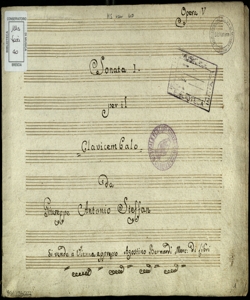 Opera V
Sonata I
per il
Clavicembalo
Da
Giuseppe Antonio Steffan
si vende a Vienna appresso Agostino Bernardi Merc. Di Libri